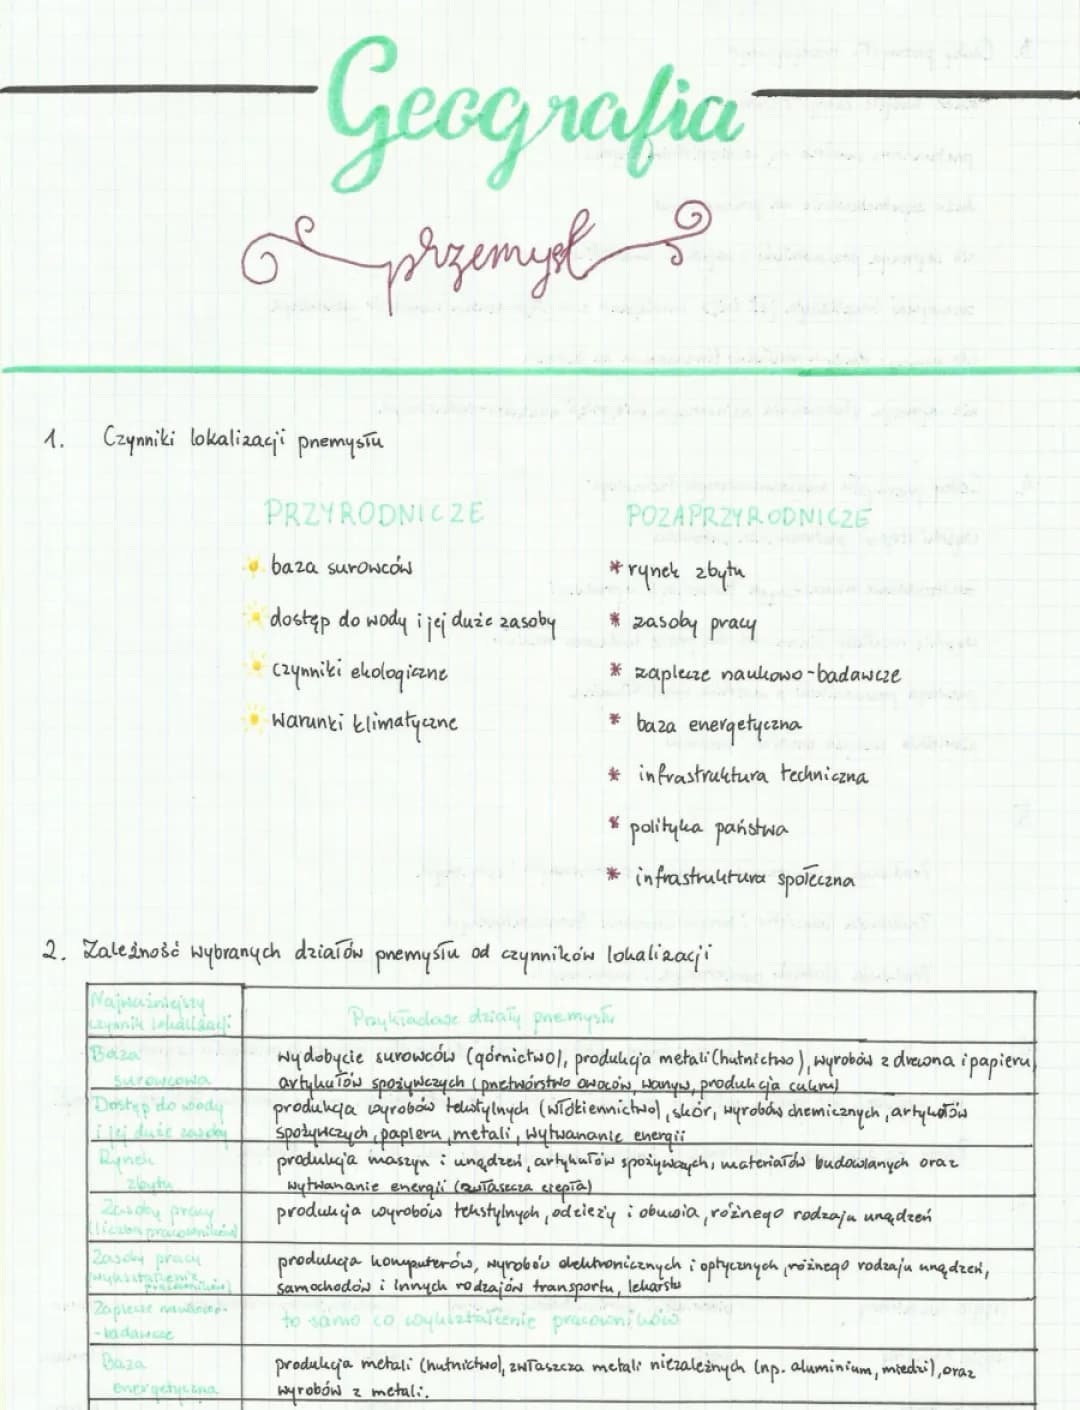 Geografia
przemysł
1. Czynniki lokalizacji przemysłu
PRZYRODNICZE
baza surowców
dostęp do wody i jej duże zasoby
czynniki ekologiczne
warunki klimatyczne
POZAPRZYRODNICZE
* rynek zbytu
* zasoby pracy
* zaplecze naukowo-badawcze
* baza energetyczna
* infrastruktura techniczna
* polityka państwa
* infrastruktura społeczna
2. Zależność wybranych działów przemysłu od czynników lokalizacji
Najważniejszy
czynnik lokalizacji:
Przykładowe działy przemysłu
Baza
surowcowa
wydobycie surowców (górnictwo), produkcja metali (hutnictwo), wyrobów z drewna i papieru,
artykułów spożywczych (przetwórstwo owoców, warzyw, produkcja cukru)
Dostęp do wody
i jej duże zasoby
produkcja wyrobów tekstylnych (włókiennictwo), skór, wyrobów chemicznych, artykułów
spożywczych, papieru, metali, wytwarzanie energii
Rynek
zbytu
produkcja maszyn i urządzeń, artykułów spożywczych, materiałów budowlanych oraz
wytwarzanie energii (zwłaszcza ciepła)
Zasoby pracy
(liczba pracowników)
produkcja wyrobów tekstylnych, odzieży i obuwia, różnego rodzaju urządzeń
Zasoby pracy
(wykształcenie
pracowników)
produkcja komputerów, wyrobów elektronicznych i optycznych, różnego rodzaju urządzeń,
samochodów i innych rodzajów transportu, lekarstw
Zaplecze naukowo-
-badawcze
to samo co wykształcenie pracowników
Baza
energetyczna
produkcja metali (hutnictwo), zwłaszcza metali nieżależnych (np. aluminium, miedzi), oraz
wyrobów z metali.